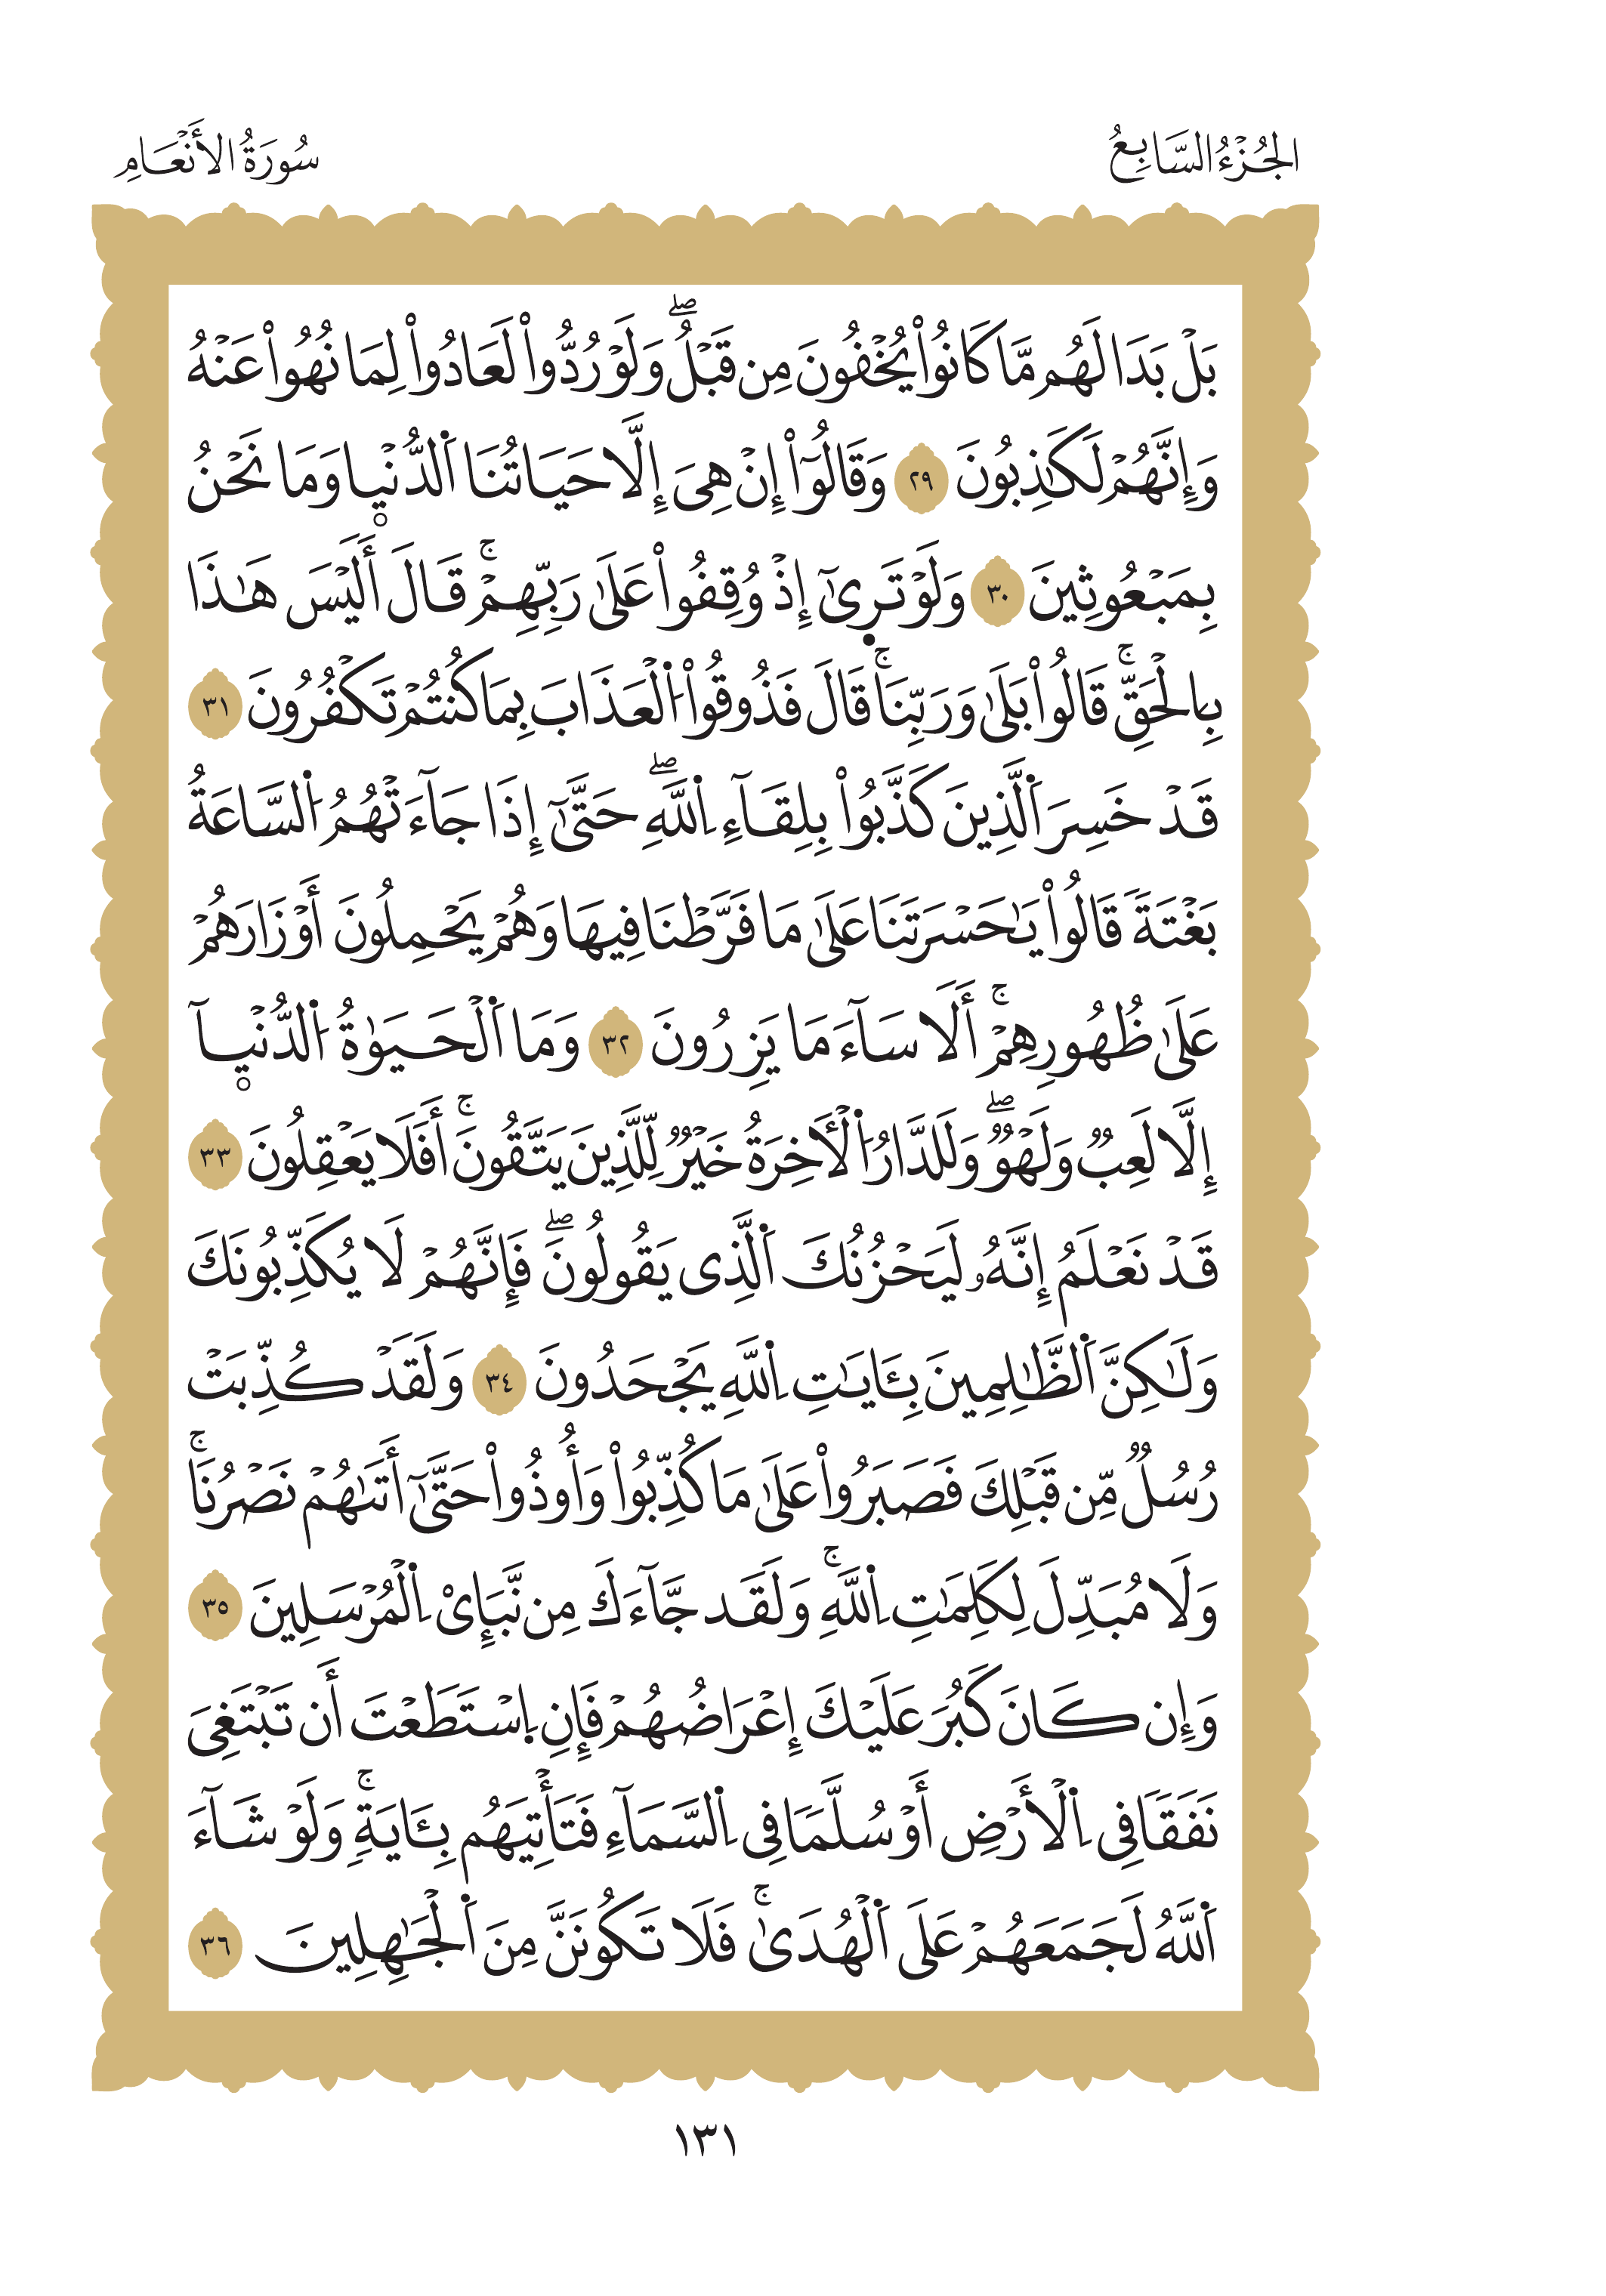 الجُزْءُ السَّابِعُ
سُورَةُ الأَنْعَامِ
بَلْ بَدَا لَهُم مَّا كَانُواْ يُخْفُونَ مِن قَبْلُۖ وَلَوْ رُدُّواْ لَعَادُواْ لِمَا نُهُواْ عَنْهُ
وَإِنَّهُمْ لَكَٰذِبُونَ ٢٩ وَقَالُوٓاْ إِنْ هِيَ إِلَّا حَيَاتُنَا اَ۬لدُّنْي۪ا وَمَا نَحْنُ
بِمَبْعُوثِينَ ٣٠ وَلَوْ تَر۪ىٰٓ إِذْ وُقِفُواْ عَلَىٰ رَبِّهِمْۚ قَالَ أَلَيْسَ هَٰذَا
بِالْحَقِّۚ قَالُواْ بَلَىٰ وَرَبِّنَاۚ قَالَ فَذُوقُواْ اُ۬لْعَذَابَ بِمَا كُنتُمْ تَكْفُرُونَ ٣١
قَدْ خَسِرَ اَ۬لَّذِينَ كَذَّبُواْ بِلِقَآءِ اِ۬للَّهِۖ حَتَّىٰٓ إِذَا جَآءَتْهُمُ اُ۬لسَّاعَةُ
بَغْتَةً قَالُواْ يَٰحَسْرَتَنَا عَلَىٰ مَا فَرَّطْنَا فِيهَا وَهُمْ يَحْمِلُونَ أَوْزَارَهُمْ
عَلَىٰ ظُهُورِهِمْۚ أَلَا سَآءَ مَا يَزِرُونَ ٣٢ وَمَا اَ۬لْحَيَوٰةُ اُ۬لدُّنْي۪آ
إِلَّا لَعِبٌ وَلَهْوٌۖ وَلَلدَّارُ اُ۬لْأٓخِرَةُ خَيْرٌ لِّلَّذِينَ يَتَّقُونَۚ أَفَلَا يَعْقِلُونَ ٣٣
قَدْ نَعْلَمُ إِنَّهُۥ لَيَحْزُنُكَ اَ۬لَّذِى يَقُولُونَۖ فَإِنَّهُمْ لَا يُكَذِّبُونَكَ
وَلَٰكِنَّ اَ۬لظَّٰلِمِينَ بِـَٔايَٰتِ اِ۬للَّهِ يَجْحَدُونَ ٣٤ وَلَقَدْ كُذِّبَتْ
رُسُلٌ مِّن قَبْلِكَ فَصَبَرُواْ عَلَىٰ مَا كُذِّبُواْ وَأُوذُواْ حَتَّىٰٓ أَتَىٰهُمْ نَصْرُنَاۚ
وَلَا مُبَدِّلَ لِكَلِمَٰتِ اِ۬للَّهِۚ وَلَقَد جَّآءَكَ مِن نَّبَإِيْ اِ۬لْمُرْسَلِينَ ٣٥
وَإِن كَانَ كَبُرَ عَلَيْكَ إِعْرَاضُهُمْ فَإِنِ اِ۪سْتَطَعْتَ أَن تَبْتَغِيَ
نَفَقًا فِي اِ۬لْأَرْضِ أَوْ سُلَّمًا فِي اِ۬لسَّمَآءِ فَتَأْتِيَهُم بِـَٔايَةٍۚ وَلَوْ شَآءَ
اَ۬للَّهُ لَجَمَعَهُمْ عَلَى اَ۬لْهُدَىٰۚ فَلَا تَكُونَنَّ مِنَ اَ۬لْجَٰهِلِينَ ٣٦
١٣١